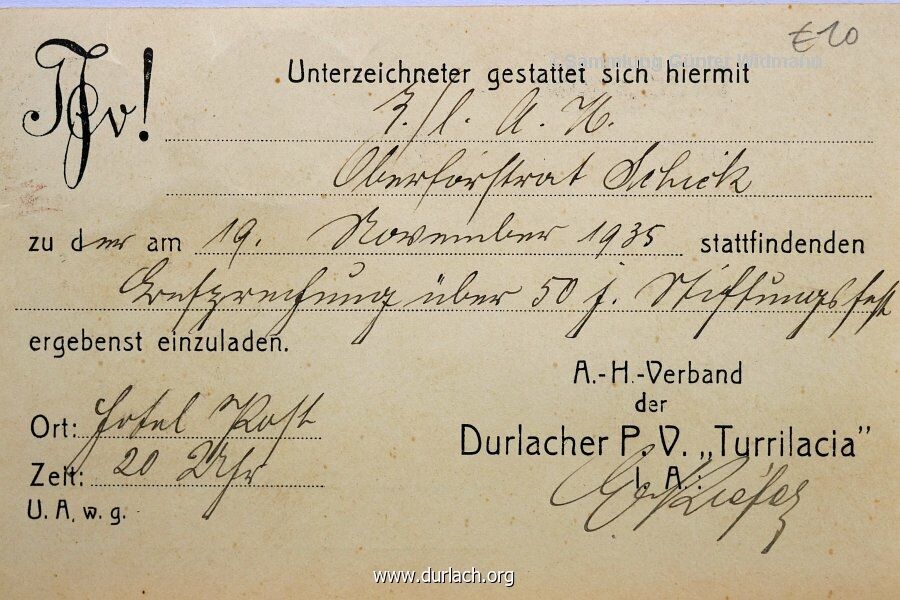 €20
Sammlung Günter Widmann
Unterzeichneter gestattet sich hiermit
l. A. H.
Oberforstrat Schick
zu der am 19. November 1935 stattfindenden
Besprechung über 50 j. Stiftungsfest
ergebenst einzuladen.
A.-H.-Verband
der
Durlacher P. V. „Turrilacia"
I. A.:
Ort: Hotel Post
Zeit: 20 Uhr
U. A. w. g.
www.durlach.org